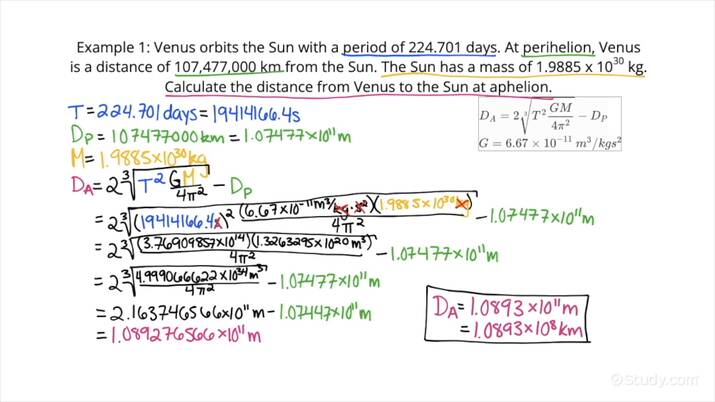 Example 1: Venus orbits the Sun with a period of 224.701 days. At perihelion, Venus
is a distance of 107,477,000 km from the Sun. The Sun has a mass of 1.9885 x 10³⁰ kg.
Calculate the distance from Venus to the Sun at aphelion.
T = 224.701 days = 19414166.4s
D_P = 107477000 km = 1.07477×10¹¹ m
M = 1.9885×10³⁰ kg
D_A = 2∛(T² GM/4π²) - D_P
= 2∛((19414166.4s)² (6.67×10⁻¹¹ m³/kg·s²)(1.9885×10³⁰ kg)/4π²) - 1.07477×10¹¹ m
= 2∛((3.76909857×10¹⁴)(1.3263295×10²⁰ m³)/4π²) - 1.07477×10¹¹ m
= 2∛(4.999066622×10³⁴ m³/4π²) - 1.07477×10¹¹ m
= 2.163746566×10¹¹ m - 1.07447×10¹¹ m
= 1.089276566×10¹¹ m
D_A = 2∛(T² GM/4π²) − D_P
G = 6.67 × 10⁻¹¹ m³/kgs²
D_A = 1.0893×10¹¹ m
= 1.0893×10⁸ km
©Study.com